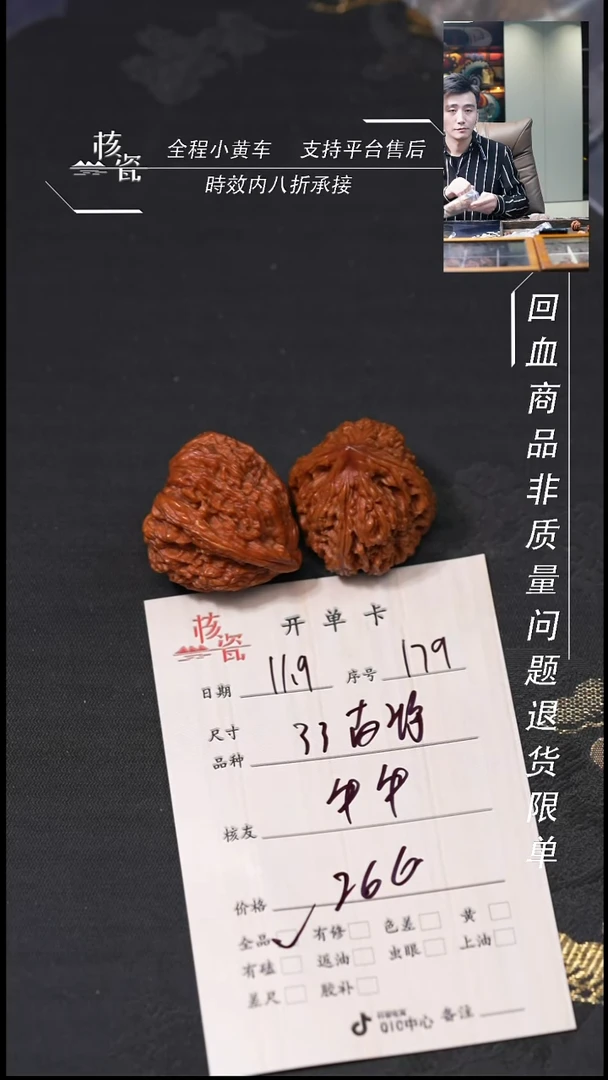 核瓷
全程小黄车 支持平台售后
時效内八折承接
回血商品非质量问题退货限单
核瓷
开单卡
日期 11.9 序号 179
尺寸
品种 33
核友 甲甲
价格 266
全品 有修 色差 黄
有磕 返油 虫眼 上油
差尺 胶补
QIC中心 备注